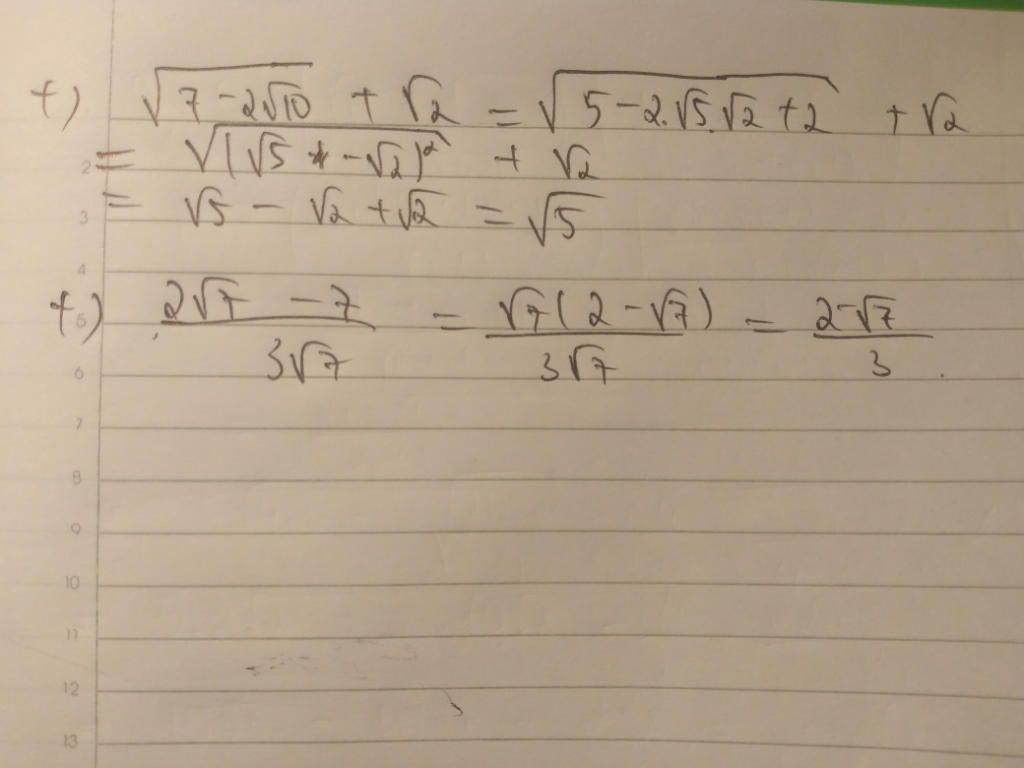 +) √(7 - 2√10) + √2 = √(5 - 2.√5.√2 + 2) + √2
2 = √((√5 - √2)²) + √2
3 = √5 - √2 + √2 = √5
4
5 +) (2√7 - 7)/(3√7) = (√7(2 - √7))/(3√7) = (2-√7)/3 .
6
7
8
9
10
11
12
13